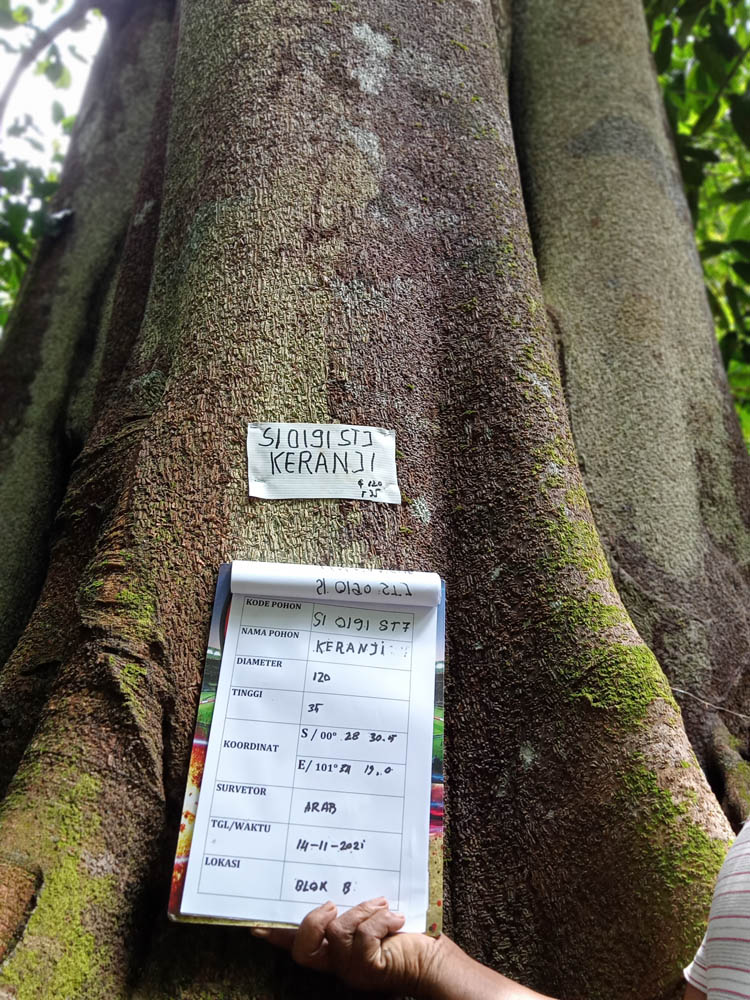 SI 0191 ST7
KERANJI
120
35
KODE POHON SI 0191 ST7
NAMA POHON KERANJI
DIAMETER 120
TINGGI 35
KOORDINAT S / 00° 28 30.5
E/ 101° 19.0
SURVETOR ARAB
TGL/WAKTU 14-11-2021
LOKASI BLOK B